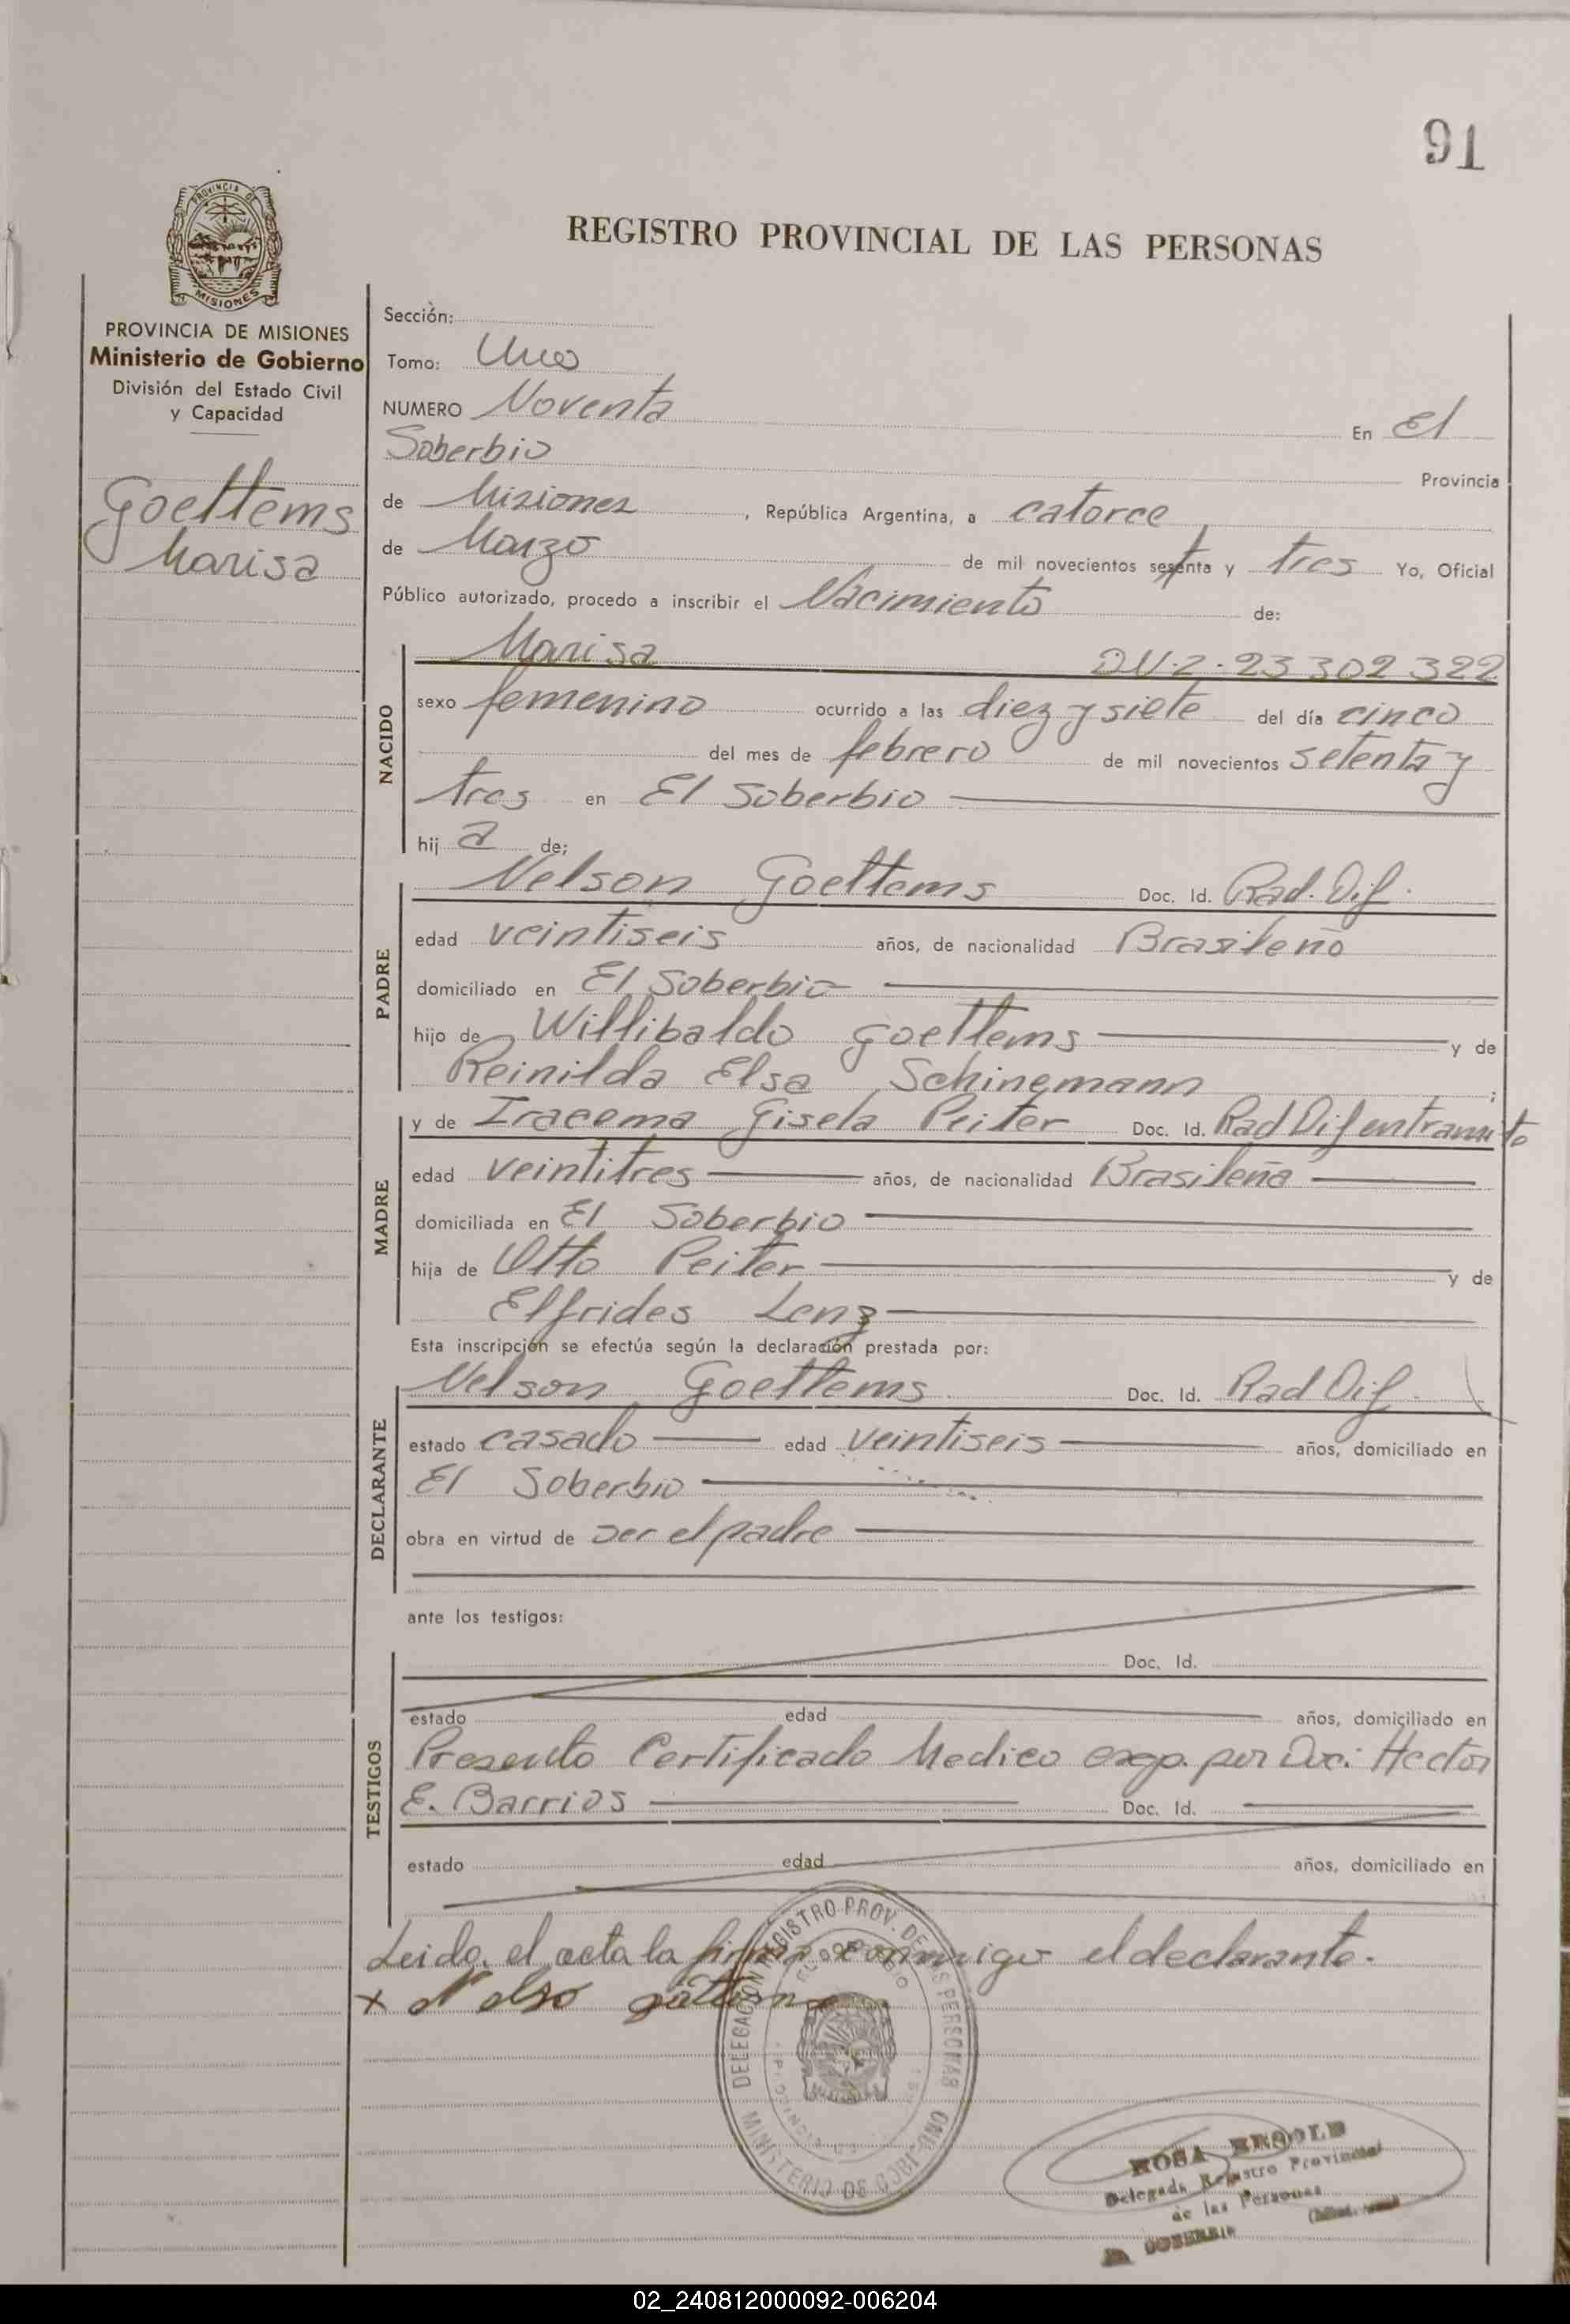 91
REGISTRO PROVINCIAL DE LAS PERSONAS
PROVINCIA DE
MISIONES
PROVINCIA DE MISIONES
Ministerio de Gobierno
División del Estado Civil
y Capacidad
Goettems
Marisa
Sección:
Tomo: Uno
NUMERO Noventa En El
Soberbio Provincia
de Misiones, República Argentina, a catorce
de Marzo de mil novecientos setenta y tres Yo, Oficial
Público autorizado, procedo a inscribir el Nacimiento de:
NACIDO
Marisa D.U.Z. 23 302 322
sexo femenino ocurrido a las diez y siete del día cinco
del mes de febrero de mil novecientos setenta y
tres en El Soberbio
hij a de;
PADRE
Nelson Goettems Doc. Id. Rad. Dif.
edad veintiseis años, de nacionalidad Brasileño
domiciliado en El Soberbio
hijo de Willibaldo Goettems y de
Reinilda Elsa Schinemann;
MADRE
y de Iracema Gisela Peiter Doc. Id. Rad Dif en tramite
edad veintitres años, de nacionalidad Brasileña
domiciliada en El Soberbio
hija de Otto Peiter y de
Elfrides Lenz
Esta inscripción se efectúa según la declaración prestada por:
DECLARANTE
Nelson Goettems Doc. Id. Rad Dif.
estado casado edad veintiseis años, domiciliado en
El Soberbio
obra en virtud de ser el padre
ante los testigos:
TESTIGOS
Doc. Id.
estado edad años, domiciliado en
Presento Certificado Medico exep. por Doc: Hector
E. Barrios Doc. Id.
estado edad años, domiciliado en
Leida el acta la firma conmigo el declarante.
x Nelso
DELEGACION REGISTRO PROV. DE LAS PERSONAS
EL SOBERBIO
MINISTERIO DE GOBIERNO
ROSA
Delegada Registro Provincial
de las Personas
SOBERBIO
02_240812000092-006204